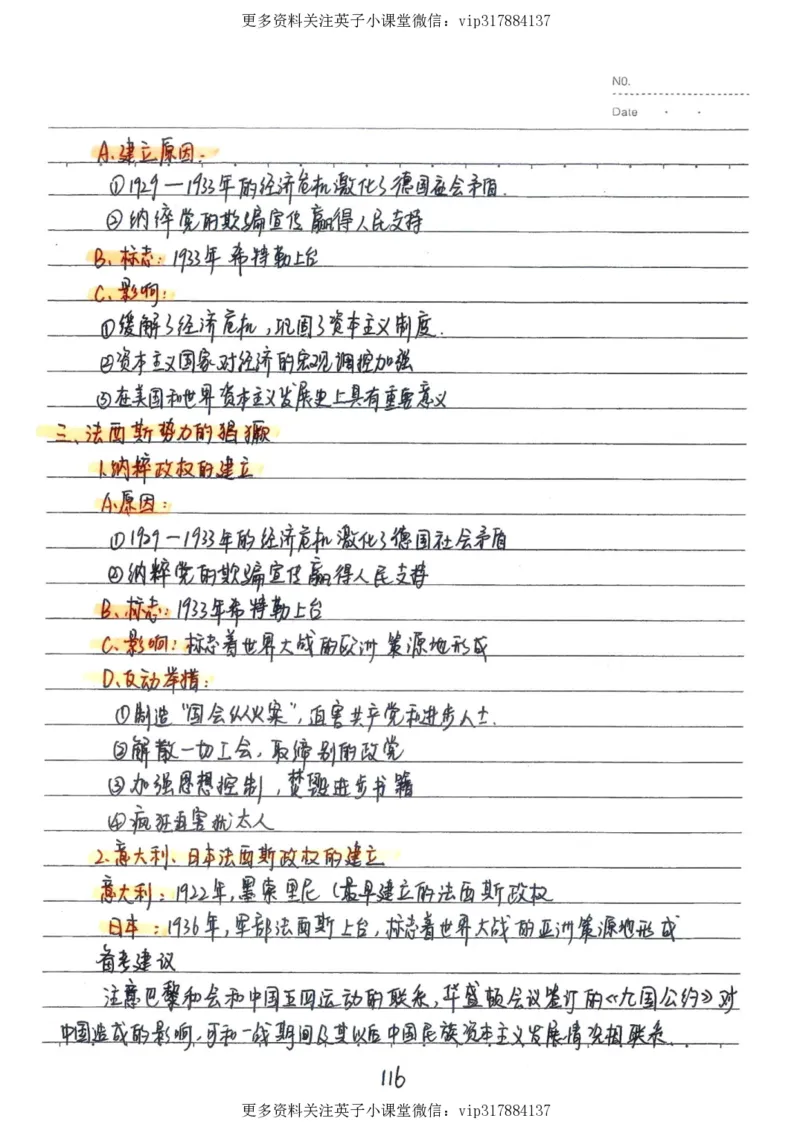 更多资料关注英子小课堂微信：vip317884137
NO.
Date
A.建立原因：
①1929—1933年的经济危机激化了德国社会矛盾.
②纳粹党的欺骗宣传赢得人民支持
B.标志：1933年希特勒上台
C.影响：
①缓解了经济危机，巩固了资本主义制度.
②资本主义国家对经济的宏观调控加强
③在美国和世界资本主义发展史上具有重要意义
三、法西斯势力的猖獗
1.纳粹政权的建立
A.原因：
①1929—1933年的经济危机激化了德国社会矛盾
②纳粹党的欺骗宣传赢得人民支持
B.标志：1933年希特勒上台
C.影响：标志着世界大战的欧洲策源地形成
D.反动举措：
①制造“国会纵火案”，迫害共产党和进步人士.
②解散一切工会，取缔别的政党
③加强思想控制，焚毁进步书籍
④疯狂迫害犹太人
2.意大利、日本法西斯政权的建立
意大利：1922年，墨索里尼（最早建立的法西斯政权
日本：1936年，军部法西斯上台，标志着世界大战的亚洲策源地形成
备考建议
注意巴黎和会和中国五四运动的联系，华盛顿会议签订的《九国公约》对
中国造成的影响，可和一战期间及其以后中国民族资本主义发展情况相联系.
116
更多资料关注英子小课堂微信：vip317884137